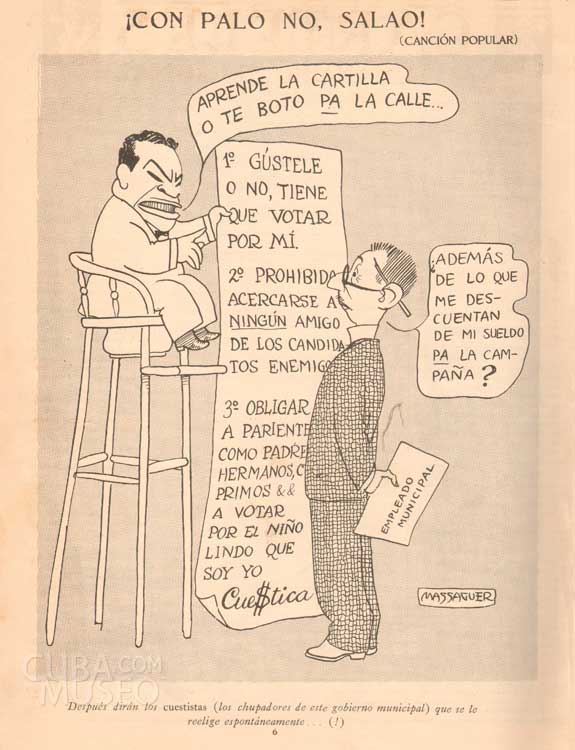 ¡CON PALO NO, SALAO!
(CANCIÓN POPULAR)
APRENDE LA CARTILLA
O TE BOTO PA LA CALLE...
1º GÚSTELE
O NO, TIENE
QUE VOTAR
POR MÍ.
2º PROHIBIDO
ACERCARSE A
NINGÚN AMIGO
DE LOS CANDIDA-
TOS ENEMIGO
3º OBLIGAR
A PARIENTE
COMO PADRE
HERMANOS, C
PRIMOS &&
A VOTAR
POR EL NIÑO
LINDO QUE
SOY YO
Cue$tica
¿ADEMÁS
DE LO QUE
ME DES-
CUENTAN
DE MI SUELDO
PA LA CAM-
PAÑA?
EMPLEADO
MUNICIPAL
MASSAGUER
CUBA.COM
MUSEO
Después dirán los cuestistas (los chupadores de este gobierno municipal) que se le
reelige espontáneamente... (!)
6